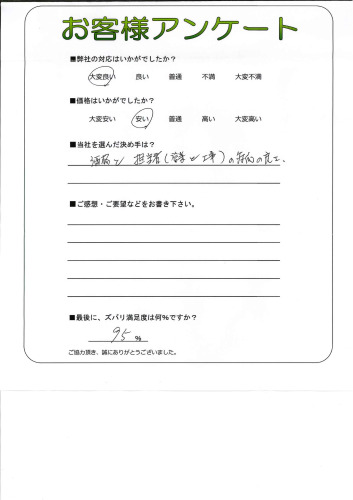 お客様アンケート
■弊社の対応はいかがでしたか？
大変良い 良い 普通 不満 大変不満
■価格はいかがでしたか？
大変安い 安い 普通 高い 大変高い
■当社を選んだ決め手は？
価格と 担当者(営業と工事)の
■ご感想・ご要望などをお書き下さい。
■最後に、ズバリ満足度は何%ですか？
95 %
ご協力頂き、誠にありがとうございました。